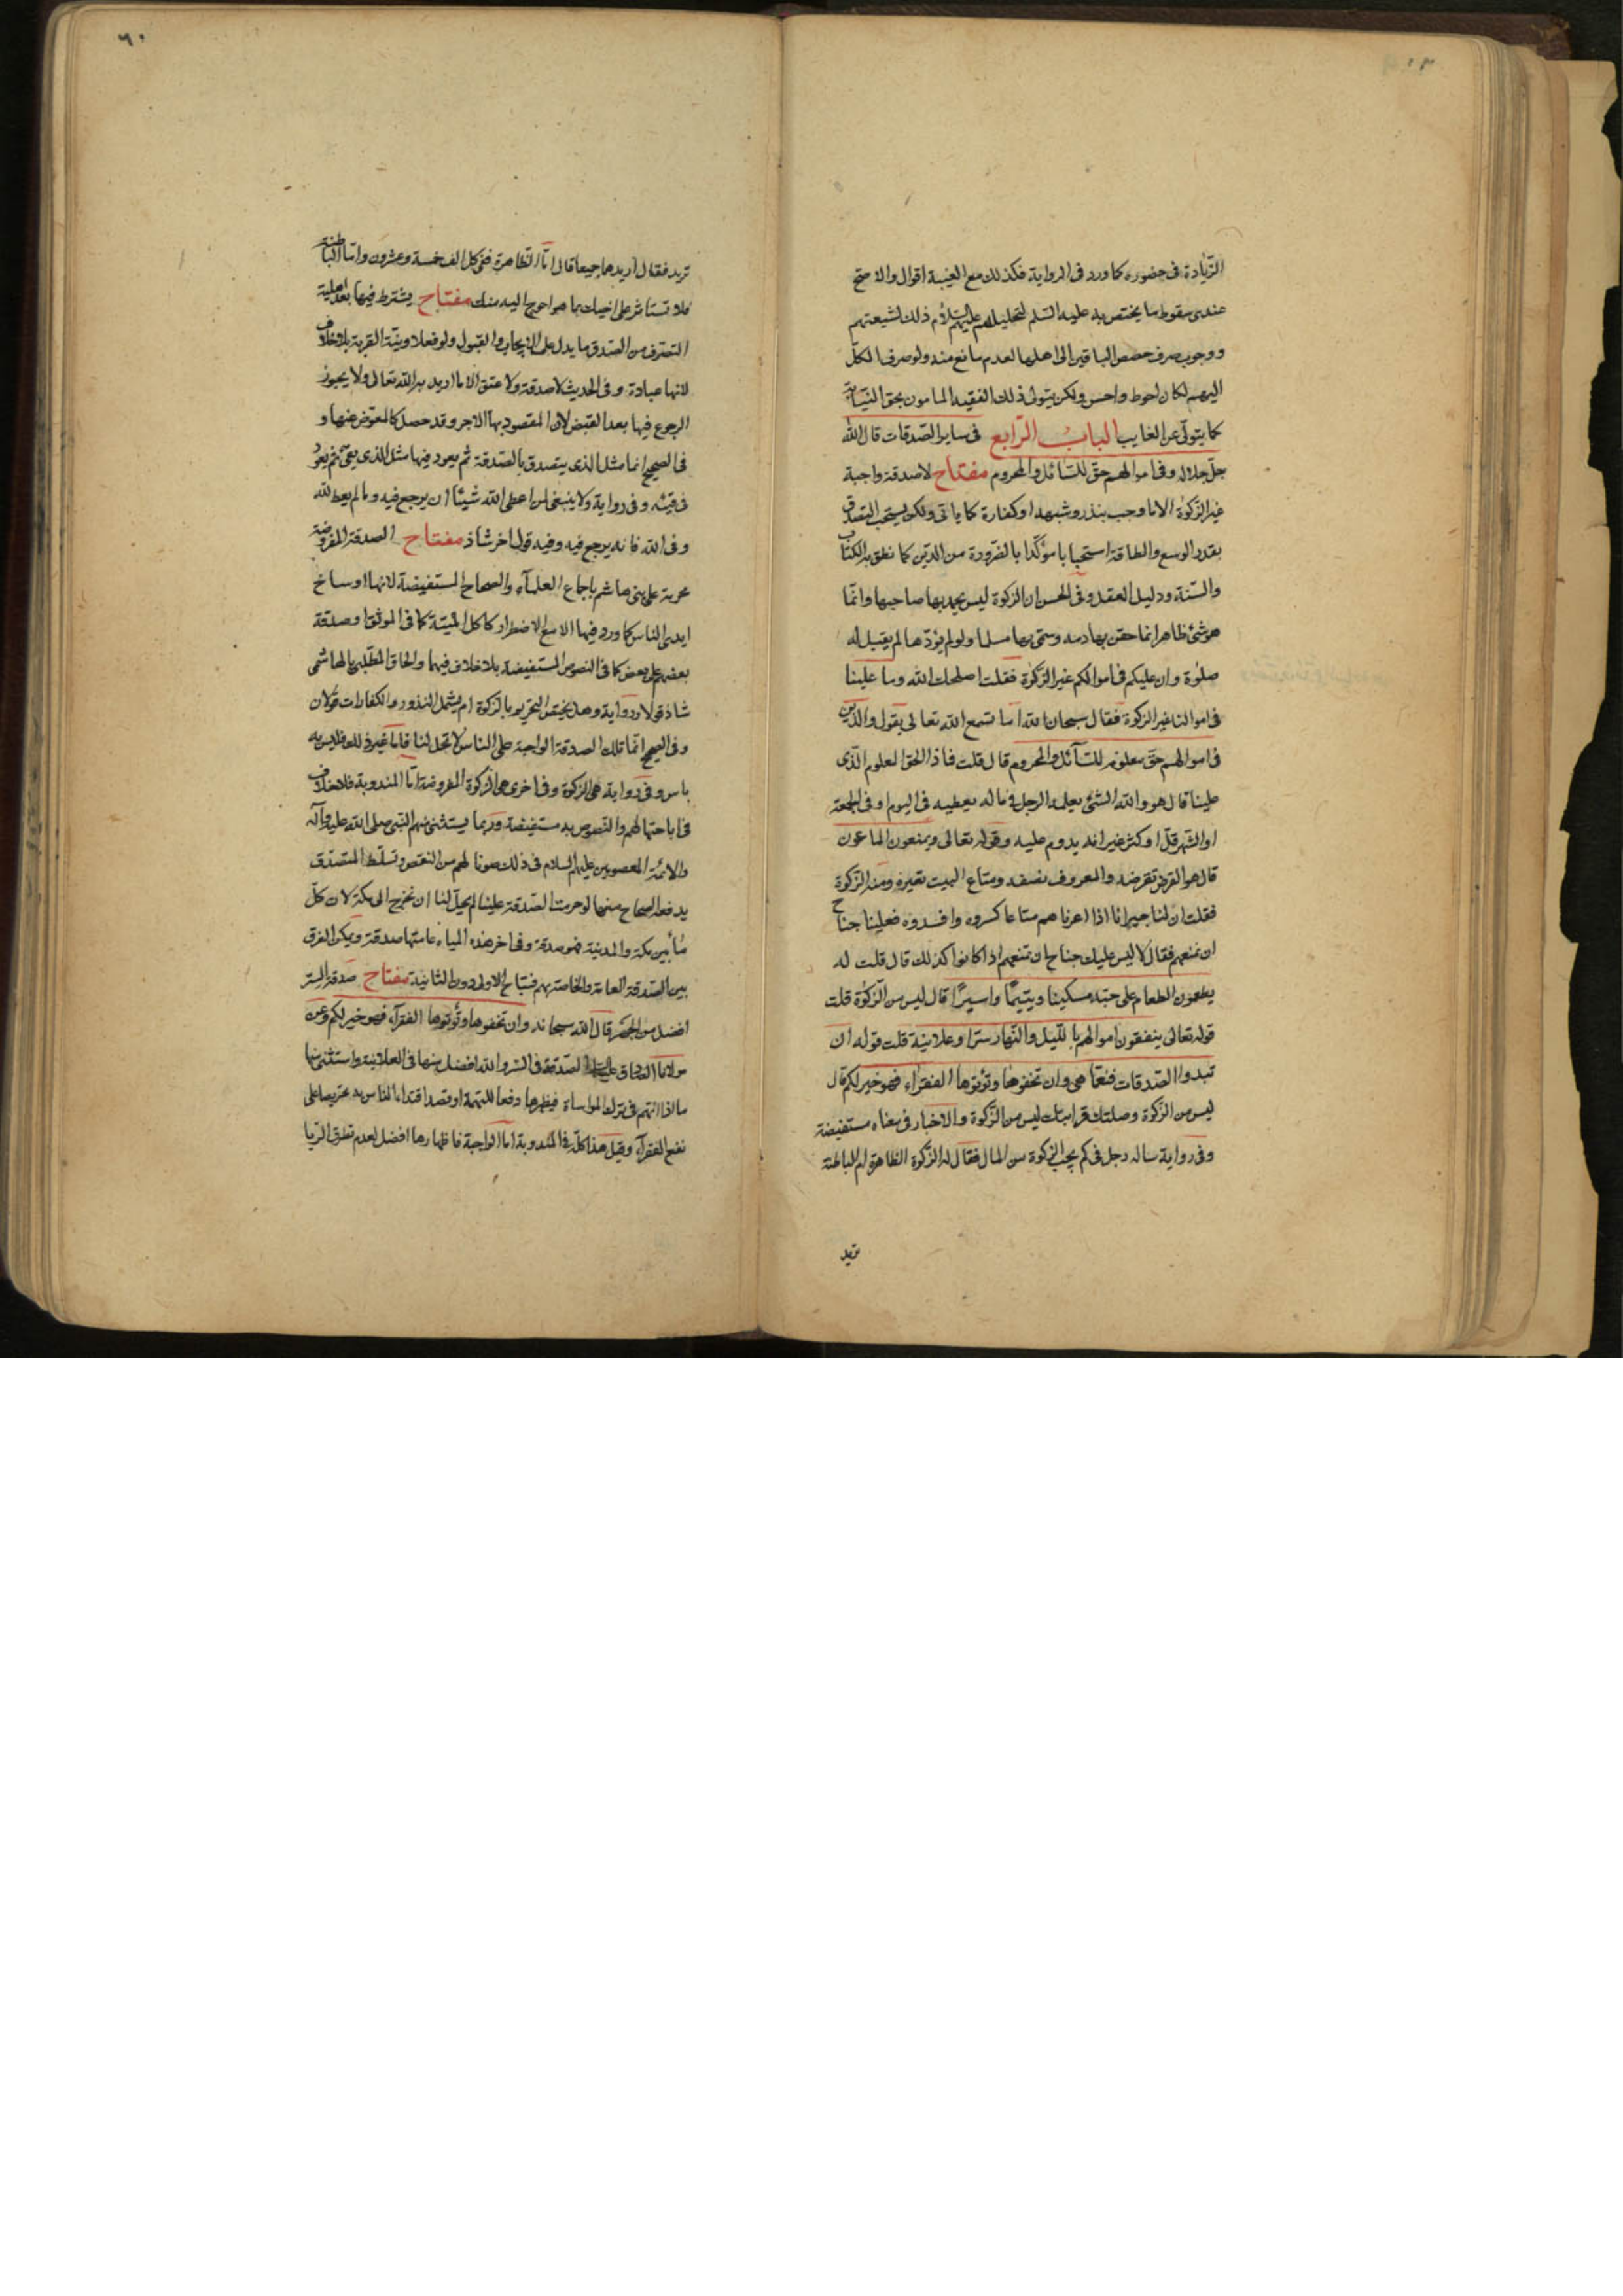 الزّيادة فى حضوره كما ورد فى الرواية فكذلك مع الغيبة اقوال والاصح
عندى سقوط ما يختص به عليه السّلم لتحليلهم عليهم السّلام ذلك لشيعتهم
ووجوب صرف حصص الباقين الى اهلها لعدم مانع منه ولو صرف الكلّ
اليهم لكان احوط واحسن ولكن يتولى ذلك الفقيه المامون بحق النّيابة
كما يتولّى عن الغايب الباب الرّابع فى ساير الصّدقات قال الله
جلّ جلاله وفى اموالهم حقّ للسّائل والمحروم مفتاح لا صدقة واجبة
غير الزّكوة الا ما وجب بنذر وشبهه او كفارة كما ياتى ولكن يستحب التصدق
بقدر الوسع والطاقة استحبابا مؤكّدا بالضّرورة من الدّين كما نطق به الكتاب
والسّنة ودليل العقل وفى الحسن ان الزكوة ليس يحمد بها صاحبها وانّما
هو شئ ظاهر انما حقن بها دمه وسمّى بها مسلما ولو لم يؤدّها لم يقبل له
صلوة وان عليكم فى اموالكم غير الزّكوة فقلت اصلحك الله وما علينا
فى اموالنا غير الزكوة فقال سبحان الله اما تسمع الله تعالى يقول والّذين
فى اموالهم حقّ معلوم للسّآئل والمحروم قال قلت فماذا الحق المعلوم الّذى
علينا قال هو والله الشئ يعلمه الرجل فى ماله يعطيه فى اليوم او فى الجمعة
او الشّهر قلّ او كثر غير انه يدوم عليه وقوله تعالى ويمنعون الماعون
قال هو القرض تقرضه والمعروف تصنعه ومتاع البيت تعيره ومنه الزّكوة
فقلت ان لنا جيرانا اذا اعرناهم متاعا كسروه وافسدوه فعلينا جناح
ان نمنعهم فقال لا ليس عليك جناح ان تمنعهم اذا كانوا كذلك قال قلت له
يطعمون الطعام على حبّه مسكينا ويتيمًا واسيرًا قال ليس من الزّكوة قلت
قوله تعالى ينفقون اموالهم بالليل والنّهار سرّا وعلانية قلت قوله ان
تبدوا الصّدقات فنعمّا هى وان تخفوها وتؤتوها الفقراء فهو خير لكم قال
ليس من الزّكوة وصلتك قرابتك ليس من الزّكوة والاخبار فى معناه مستفيضة
وفى رواية ساله رجل فى كم يجب الزكوة من المال فقال له الزّكوة الظاهرة ام الباطنة
تريد
٦٠
تريد فقال اريدهما جميعا قال امّا الظاهرة ففى كل الف خمسة وعشرون وامّا الباطنة
فلا تستاثر على اخيك بما هو احوج اليه منك مفتاح يشترط فيها بعد اهلية
التصرف من المتصدق ما يدل على الايجاب والقبول ولو فعلا ونيّة القربة بلا خلاف
لانها عبادة وفى الحديث لا صدقة ولا عتق الا ما اريد به الله تعالى ولا يجوز
الرجوع فيها بعد القبض لانّ المقصود بها الاجر وقد حصل كالمعوّض عنها و
فى الصحيح انما مثل الذى يتصدق بالصّدقة ثم يعود فيها مثل الذى يقئ ثم يعود
فى قيئه وفى رواية ولا ينبغى لمن اعطى الله شيئا ان يرجع فيه وما لم يعط لله
وفى الله فانه يرجع فيه وفيه قول اخر شاذ مفتاح الصدقة المفروضة
محرمة على بنى هاشم باجماع العلمآء والصحاح المستفيضة لانها اوساخ
ايدى الناس كما ورد فيها الا مع الاضطرار كاكل الميتة كما فى الموثق او صدقة
بعضهم على بعض كما فى النصوص المستفيضة بلا خلاف فيهما والحاق المطّلبى بالهاشمى
شاذ قولا ورواية وهل يختص التحريم بالزكوة ام يشمل النذور والكفارات قولان
وفى الصحيح انّما تلك الصدقة الواجبة على الناس لا تحل لنا فاما غير ذلك فليس به
باس وفى رواية هى الزكوة وفى اخرى هى الزكوة المفروضة امّا المندوبة فلا خلاف
فى اباحتها لهم والنّصوص به مستفيضة وربما يستثنى منهم النّبى صلى الله عليه وآله
والائمّة المعصومين عليهم السلام فى ذلك صونا لهم من النقص وتسلّط المتصدّق
يدفعه الصحاح منها لو حرمت الصّدقة علينا لم يحلّ لنا ان نخرج الى مكة لان كلّ
مآء بين مكة والمدينة فهو صدقة وفى اخر هذه المياه عامتها صدقة ويمكن الفرق
بين الصّدقة العامة والخاصة بهم فتباح الاولى دون الثانية مفتاح صدقة السّر
افضل من الجهر قال الله سبحانه وان تخفوها وتؤتوها الفقرآء فهو خير لكم وعن
مولانا الصّادق عليه السلام الصّدقة فى السّر والله افضل منها فى العلانية واستثنى منها
ما اذا اتّهم فى ترك المواساة فيظهرها دفعا للتهمة او قصد اقتداء الناس به تحريصا على
نفع الفقرآء وقيل هذا كلّه فى المندوبة اما الواجبة فاظهارها افضل لعدم تطرق الرّيا